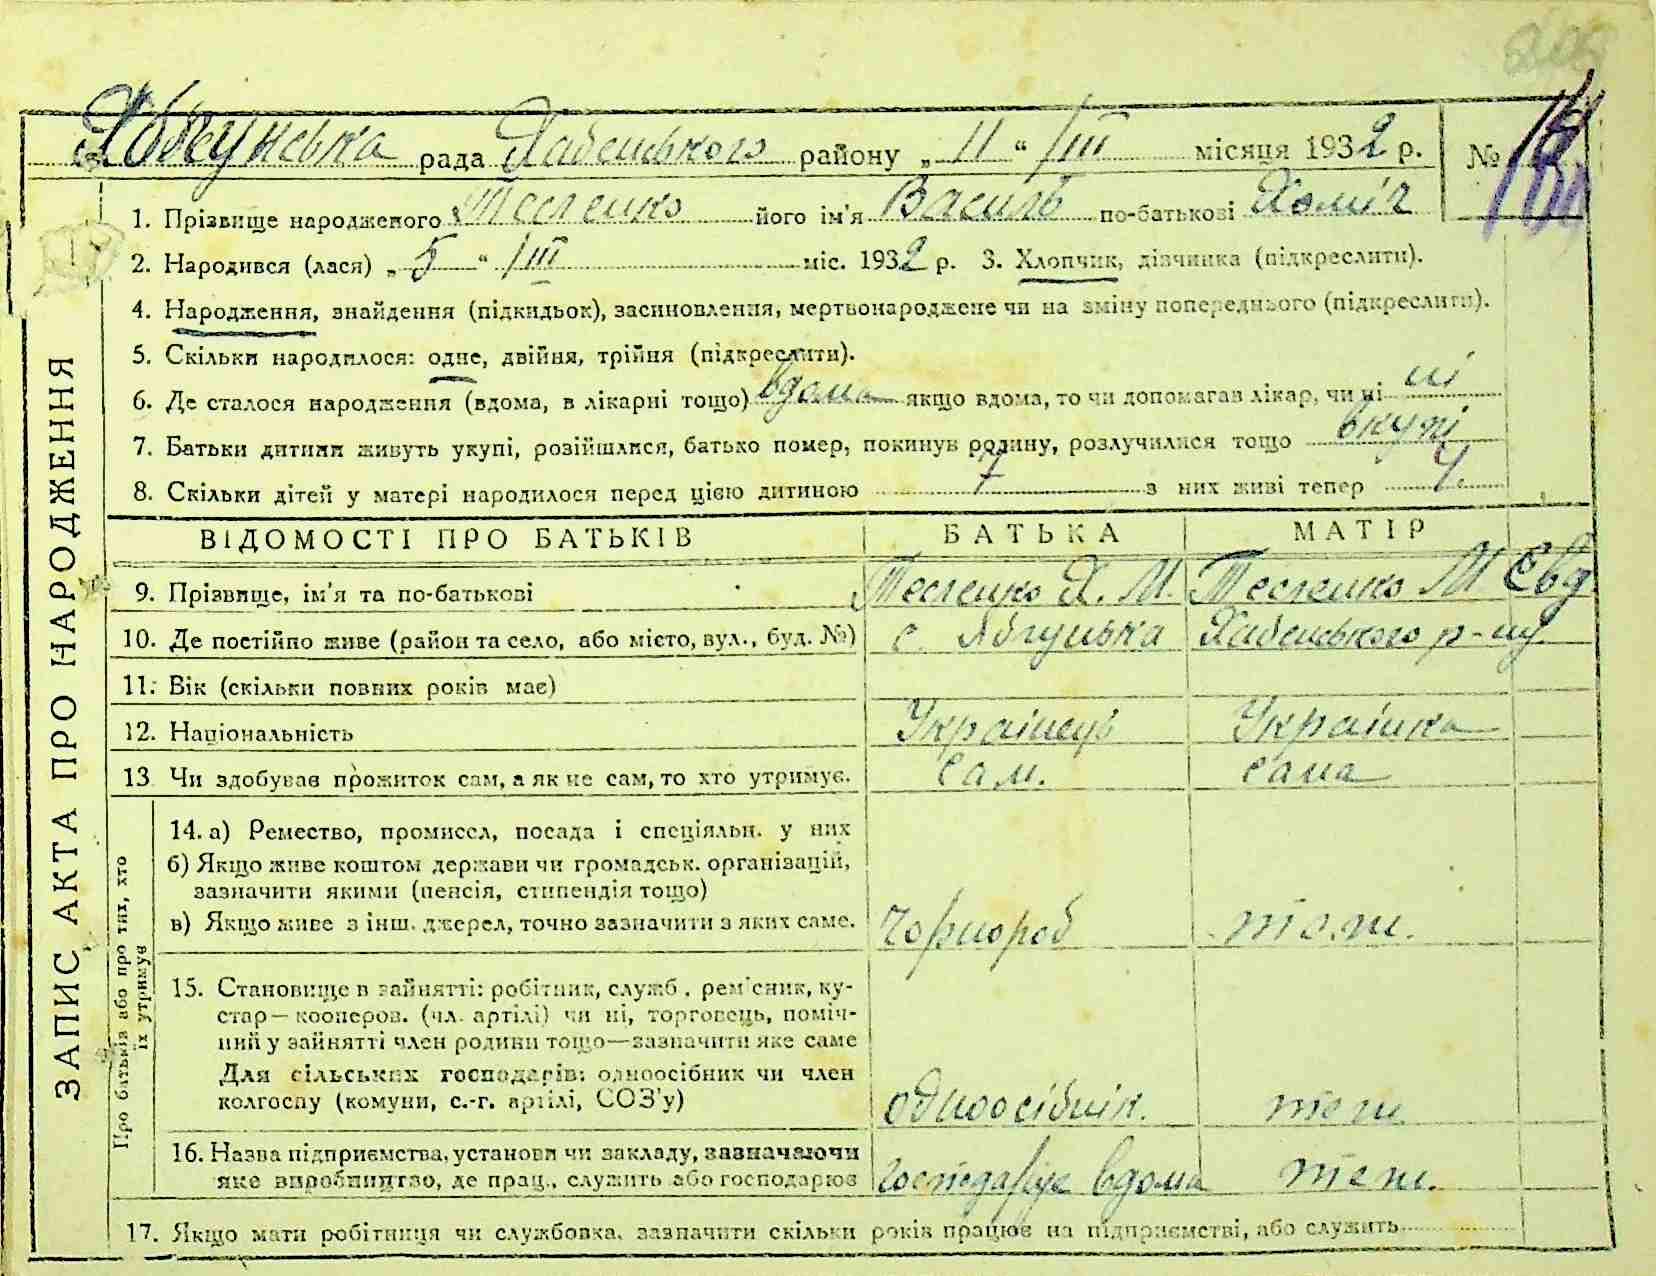 Яблунська рада Хабенського району „ 11 “ /III місяця 1932 р. №
1. Прізвище народженого Тесленко його ім'я Василь по-батькові Хоміч
2. Народився (лася) „ 5 “ /III міс. 1932 р. 3. Хлопчик, дівчинка (підкреслити).
4. Народження, знайдення (підкидьок), засиновлення, мертвонароджене чи на зміну попереднього (підкреслити).
5. Скільки народилося: одне, двійня, трійня (підкреслити).
6. Де сталося народження (вдома, в лікарні тощо) вдома якщо вдома, то чи допомагав лікар, чи ні ні
7. Батьки дитини живуть укупі, розійшлися, батько помер, покинув родину, розлучилися тощо вкупі
8. Скільки дітей у матері народилося перед цією дитиною 7 з них живі тепер 4.
ВІДОМОСТІ ПРО БАТЬКІВ БАТЬКА МАТІР
9. Прізвище, ім'я та по-батькові Тесленко Х. М. Тесленко М Євд.
10. Де постійно живе (район та село, або місто, вул., буд. №) с. Яблунька Хабенського р-ну
11. Вік (скільки повних років має)
12. Національність Українець Українка
13. Чи здобував прожиток сам, а як не сам, то хто утримує. Сам. сама
14. а) Ремество, промисел, посада і спеціяльн. у них
б) Якщо живе коштом держави чи громадськ. організацій,
зазначити якими (пенсія, стипендія тощо)
в) Якщо живе з інш. джерел, точно зазначити з яких саме. Чорнороб теж.
15. Становище в зайнятті: робітник, служб., рем'сник, ку-
стар—кооперов. (чл. артілі) чи ні, торговець, поміч-
ний у зайнятті член родини тощо—зазначити яке саме
Для сільських господарів: одноосібник чи член
колгоспу (комуни, с.-г. артілі, СОЗ'у) одноосібник. теж
16. Назва підприємства, установи чи закладу, зазначаючи
яке виробництво, де прац., служить або господарює господарює вдома теж.
17. Якщо мати робітниця чи службовка, зазначити скільки років працює на підприємстві, або служить
ЗАПИС АКТА ПРО НАРОДЖЕННЯ
Про батьків або про тих, хто
їх утримує